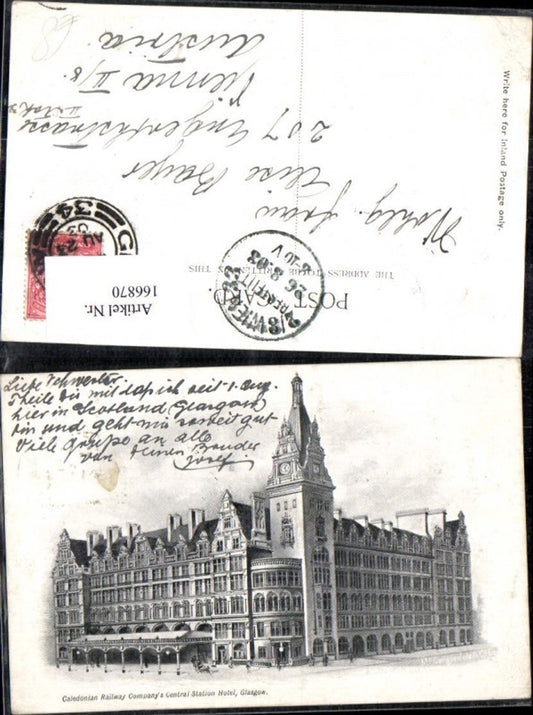 Write here for Inland Postage only.
POST CARD
THE ADDRESS TO BE WRITTEN ON THIS
Wohlg. Fräulein
Luise Bayer
207
Vienna II/8.
Austria
34
AU 23
03
26 8 03
Artikel Nr.
166870
Liebe Schwester.
Theile Dir mit dass ich seit 1. Aug.
hier in Scotland (Glasgow)
bin und geht mir soweit gut
Viele Grüße an alle
von Deinen Bruder
Josef
Caledonian Railway Company's Central Station Hotel, Glasgow.